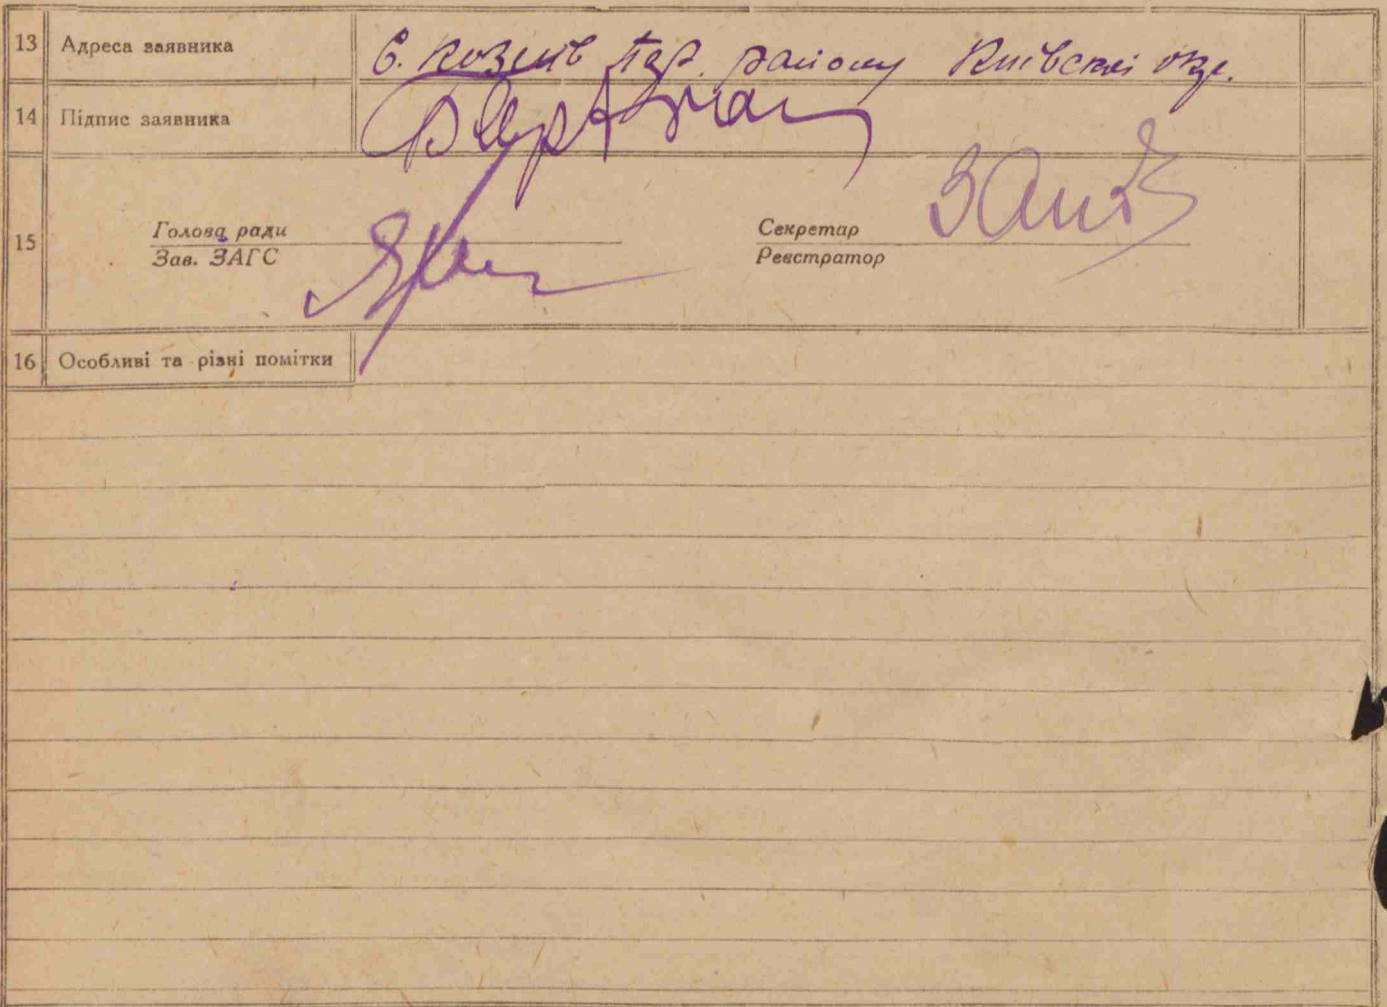 13 Адреса заявника с. Козлів Пер. району Київскої окр.
14 Підпис заявника
15 Голова ради Секретар
Зав. ЗАГС Реєстратор
16 Особливі та різні помітки